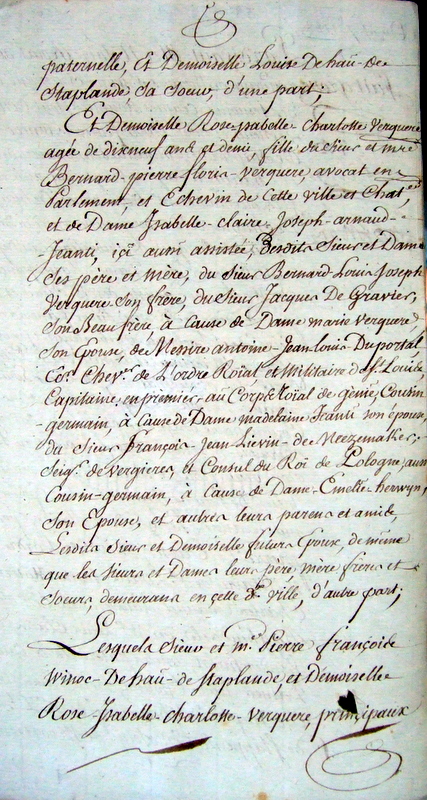 paternelle, Et Demoiselle Louise De hau-de
Staplande, sa Soeur, d'une part;
Et Demoiselle Rose-jsabelle-charlotte Verquere
agée de dixneuf ans et demie, fille du sieur et mre
Bernard-pierre floris-verquere, avocat en
Parlement, et Echevin de Cette ville et Chat.en
et de Dame Isabelle-claire-Joseph-arnaud-
-Jeanti, içi aussi assistée, Desdits Sieur et Dame
Ses père et mère, du Sieur Bernard-Louis-Joseph
Verquere Son frère, du Sieur Jacques De Gravier,
Son Beau frère, à Cause de Dame marie verquere,
Son Epouse, de Messire antoine-Jean-Louis Duportal
Chev.er de L'ordre Roïal et Militaire de St. Louis,
Capitaine en premier au Corps Roïal de génie, Cousin
germain, à Cause de Dame madelaine Jeanti son épouse,
du Sieur françois Jean Lievin-de-Neezemaker,
Seig.r de vergieres, et Consul du Roi de Pologne, aussi
Cousin-germain, à Cause de Dame-Emelte-herwyn,
Son Epouse, et autres leurs parens et amis,
Lesdits Sieur et Demoiselle futurs Epoux, de même
que les sieurs et Dames leurs père, mère frères et
Soeurs, demeurans en çette de. ville, d'autre part;
Lesquels Sieur et me. Pierre françois
Winoc-De hau-de Staplande, et Demoiselle
Rose-Isabelle-charlotte-verquere, principaux